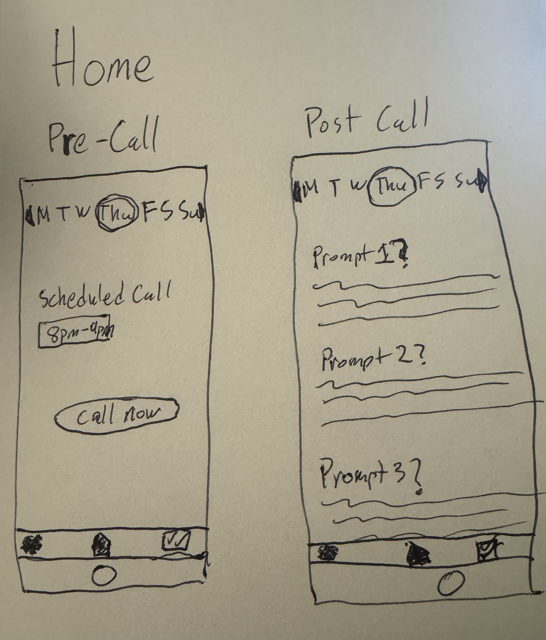 Home
Pre-Call
M T W Thu F S Su
Scheduled Call
8pm-9pm
Call Now
Post Call
M T W Thu F S Su
Prompt 1?
Prompt 2?
Prompt 3?